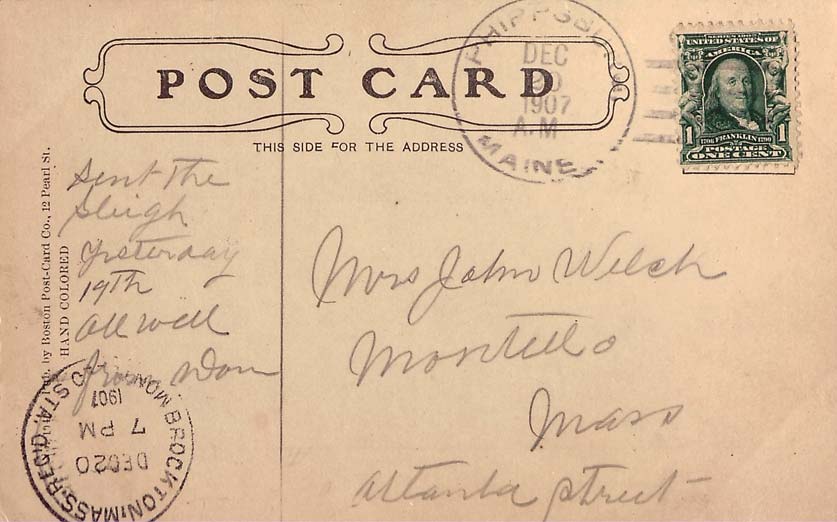 POST CARD
THIS SIDE FOR THE ADDRESS
PHIPPSBU
DEC
1907
A.M
MAINE
SERIES 1902
UNITED STATES OF
AMERICA
1 1706 FRANKLIN 1790 1
POSTAGE
ONE CENT
by Boston Post-Card Co., 12 Pearl St.
HAND COLORED
Sent The
Sleigh
yesterday
19th
all well
from
Mrs John Welch
Montello
Mass
Atlanta street
BROCKTON, MASS.
STA.
DEC 20
7 PM
1907